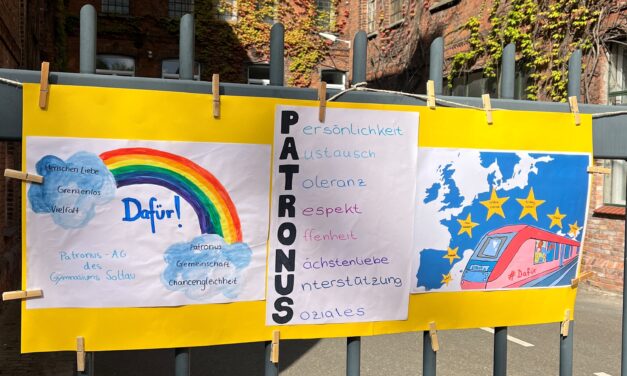 Menschen Liebe
Grenzenlos
Vielfalt
Dafür!
Patronus-AG
des
Gymnasiums Soltau
Patronus
Gemeinschaft
Chancengleichheit
Persönlichkeit
Austausch
Toleranz
Respekt
Offenheit
Nächstenliebe
Unterstützung
Soziales
#Dafür